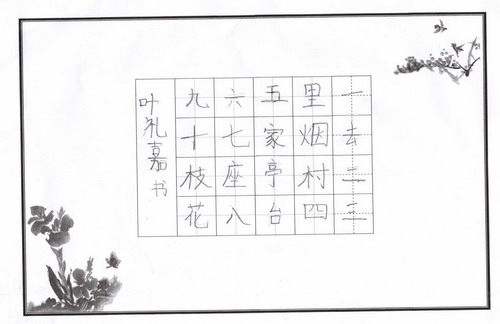 一去二三
里烟村四
五家亭台
六七座八
九十枝花
叶礼嘉书